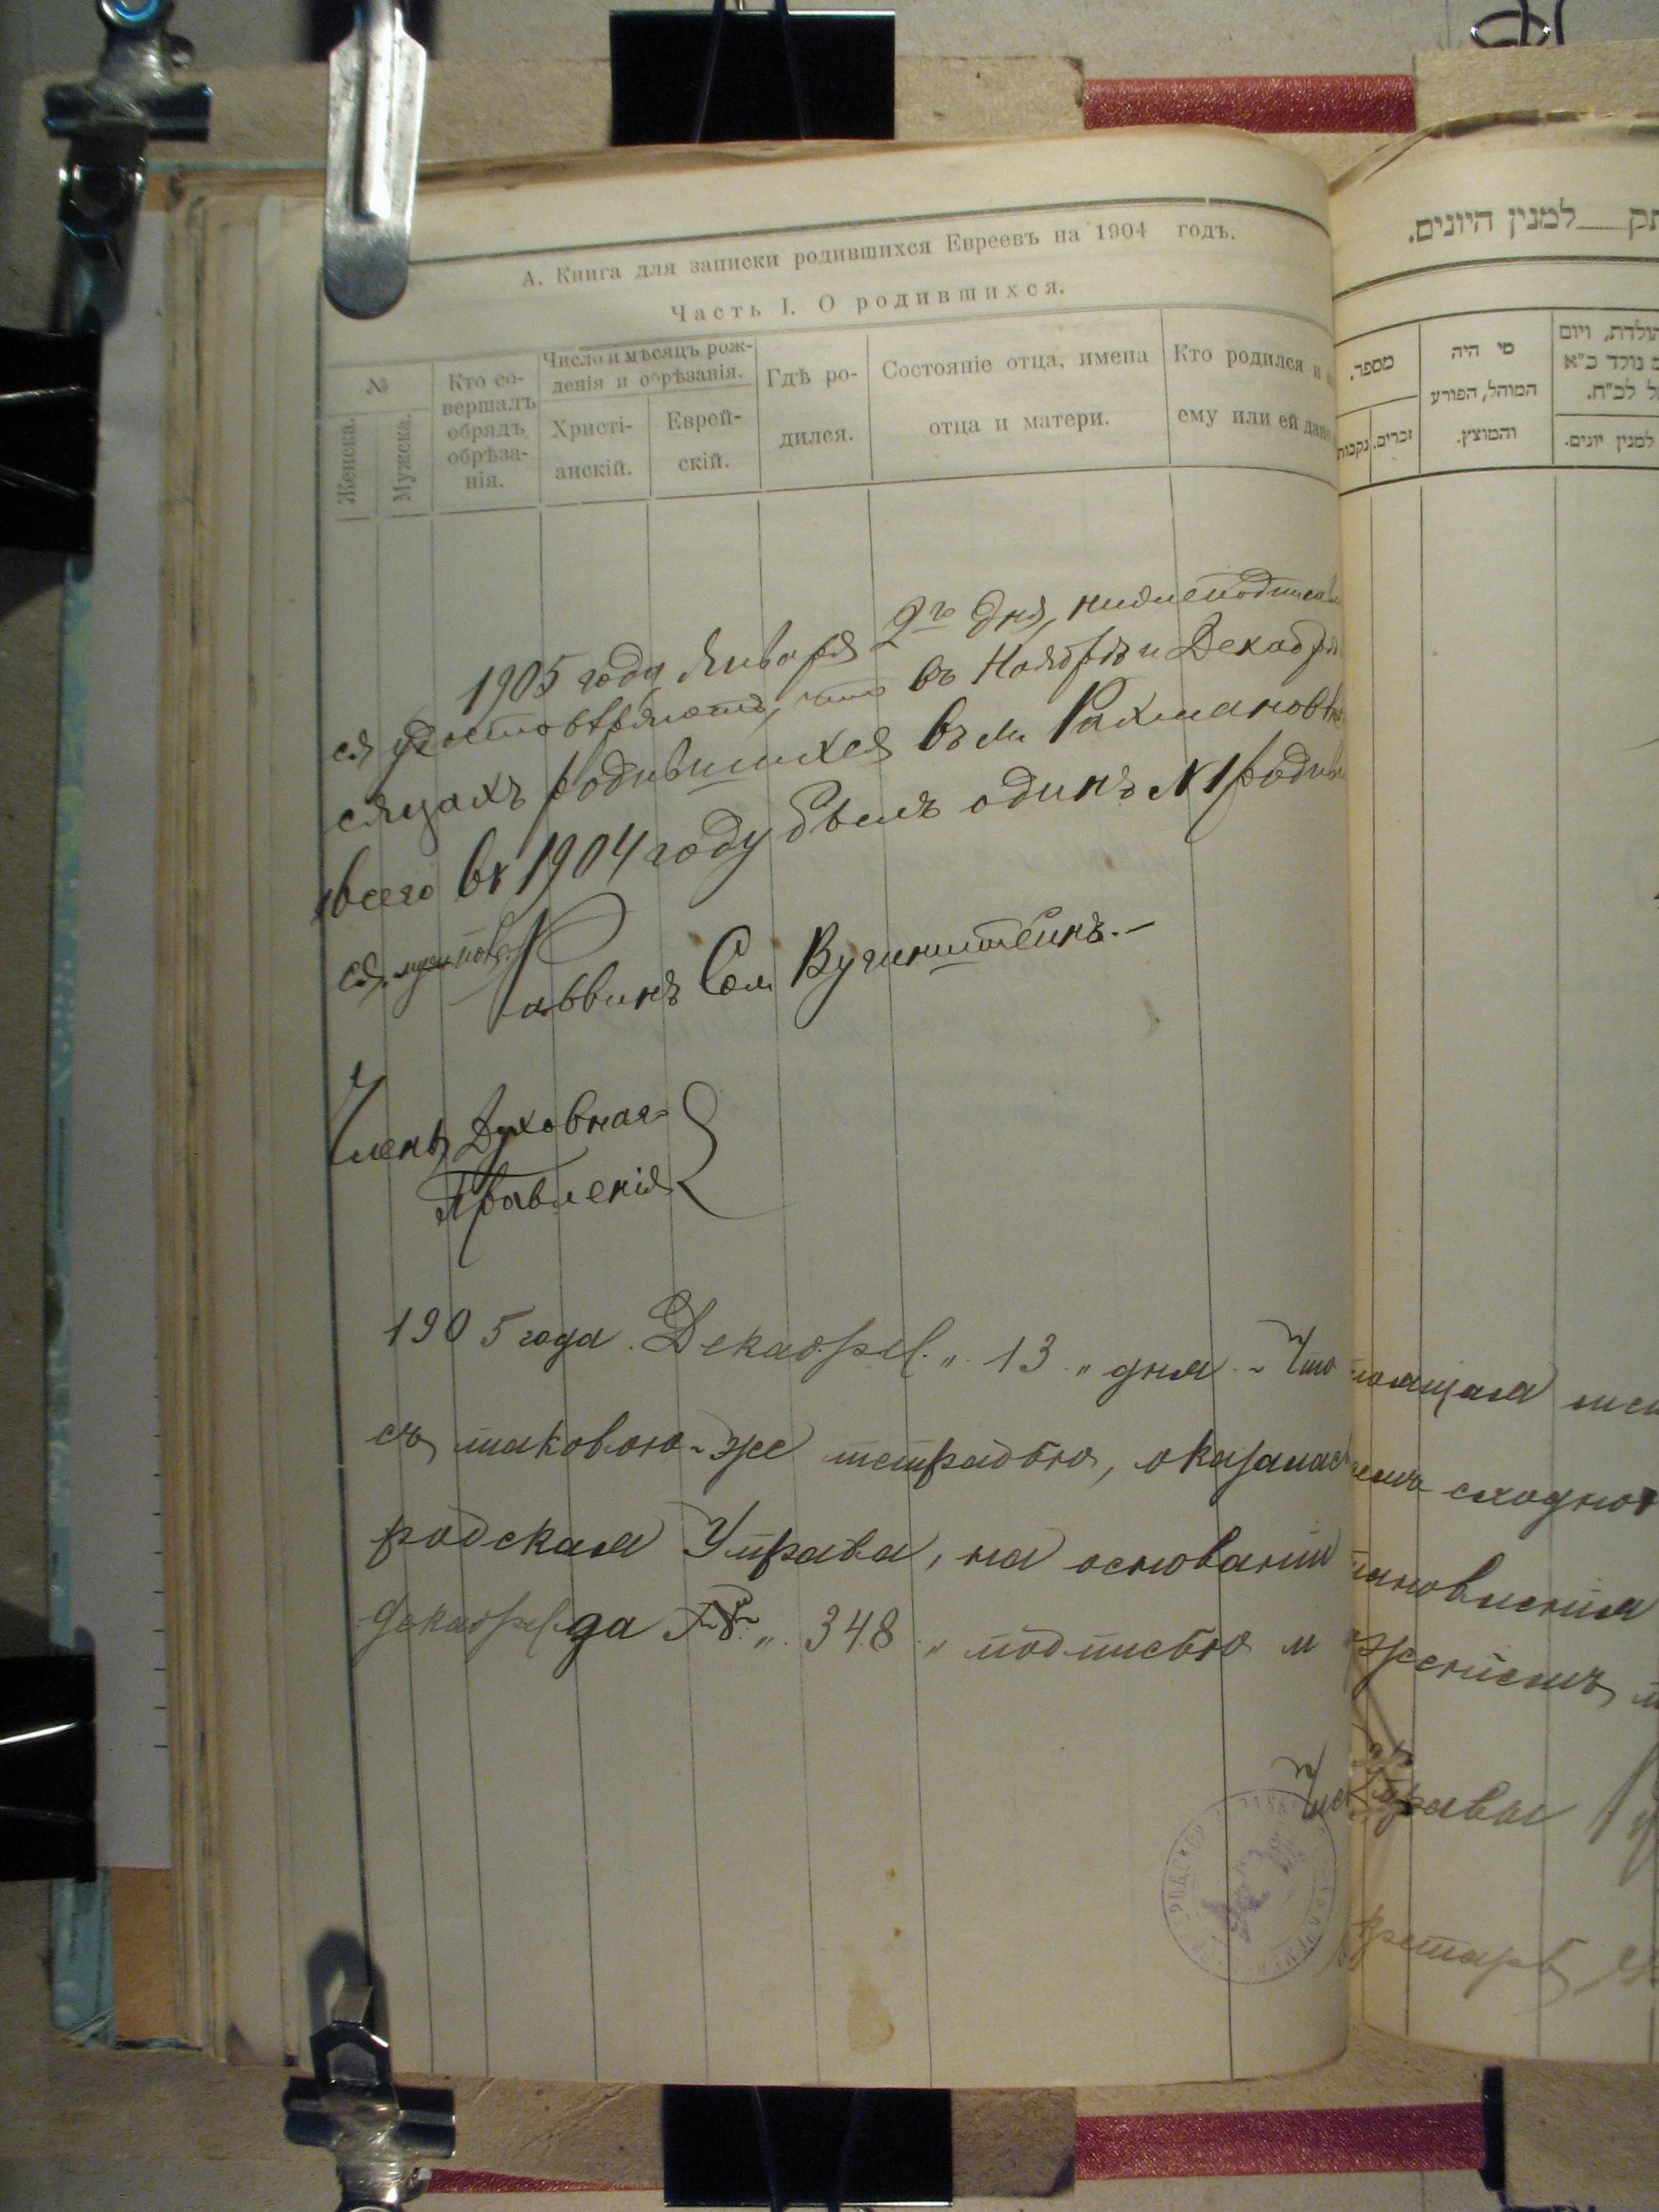 А. Книга для записки родившихся Евреевъ на 1904 годъ.
Часть I. О родившихся.
№
Женска.
Мужска.
Кто со-
вершалъ
обрядъ
обрѣза-
нія.
Число и мѣсяцъ рож-
денія и обрѣзанія.
Христі-
анскій.
Еврей-
скій.
Гдѣ ро-
дился.
Состояніе отца, имена
отца и матери.
Кто родился и
ему или ей дано
1905 года Января 9го дня, нижеподписав
ся удостовѣряютъ, что въ Ноябрѣ и Декабрѣ
сяцахъ родившихся въ м. Рахмановкѣ
всего въ 1904 году былъ одинъ №1 родив
ся
Раввинъ Сол Вугинштейнъ.-
Членъ Духовная
Правленія
1905 года. Декабря. „ 13 „ дня. - Что
съ таковою-же тетрадью, оказалась сходною
родская Управа, на основаніи тановленія
декабря да № „ 348 „ подписью и женіемъ
Управы
кретарь
למנין היונים.
מספר.
זכרים.
נקבות
מי היה
המוהל, הפורע
והמוצץ.
הולדת, ויום
נולד ב"א
לכ"ח.
למנין יונים.